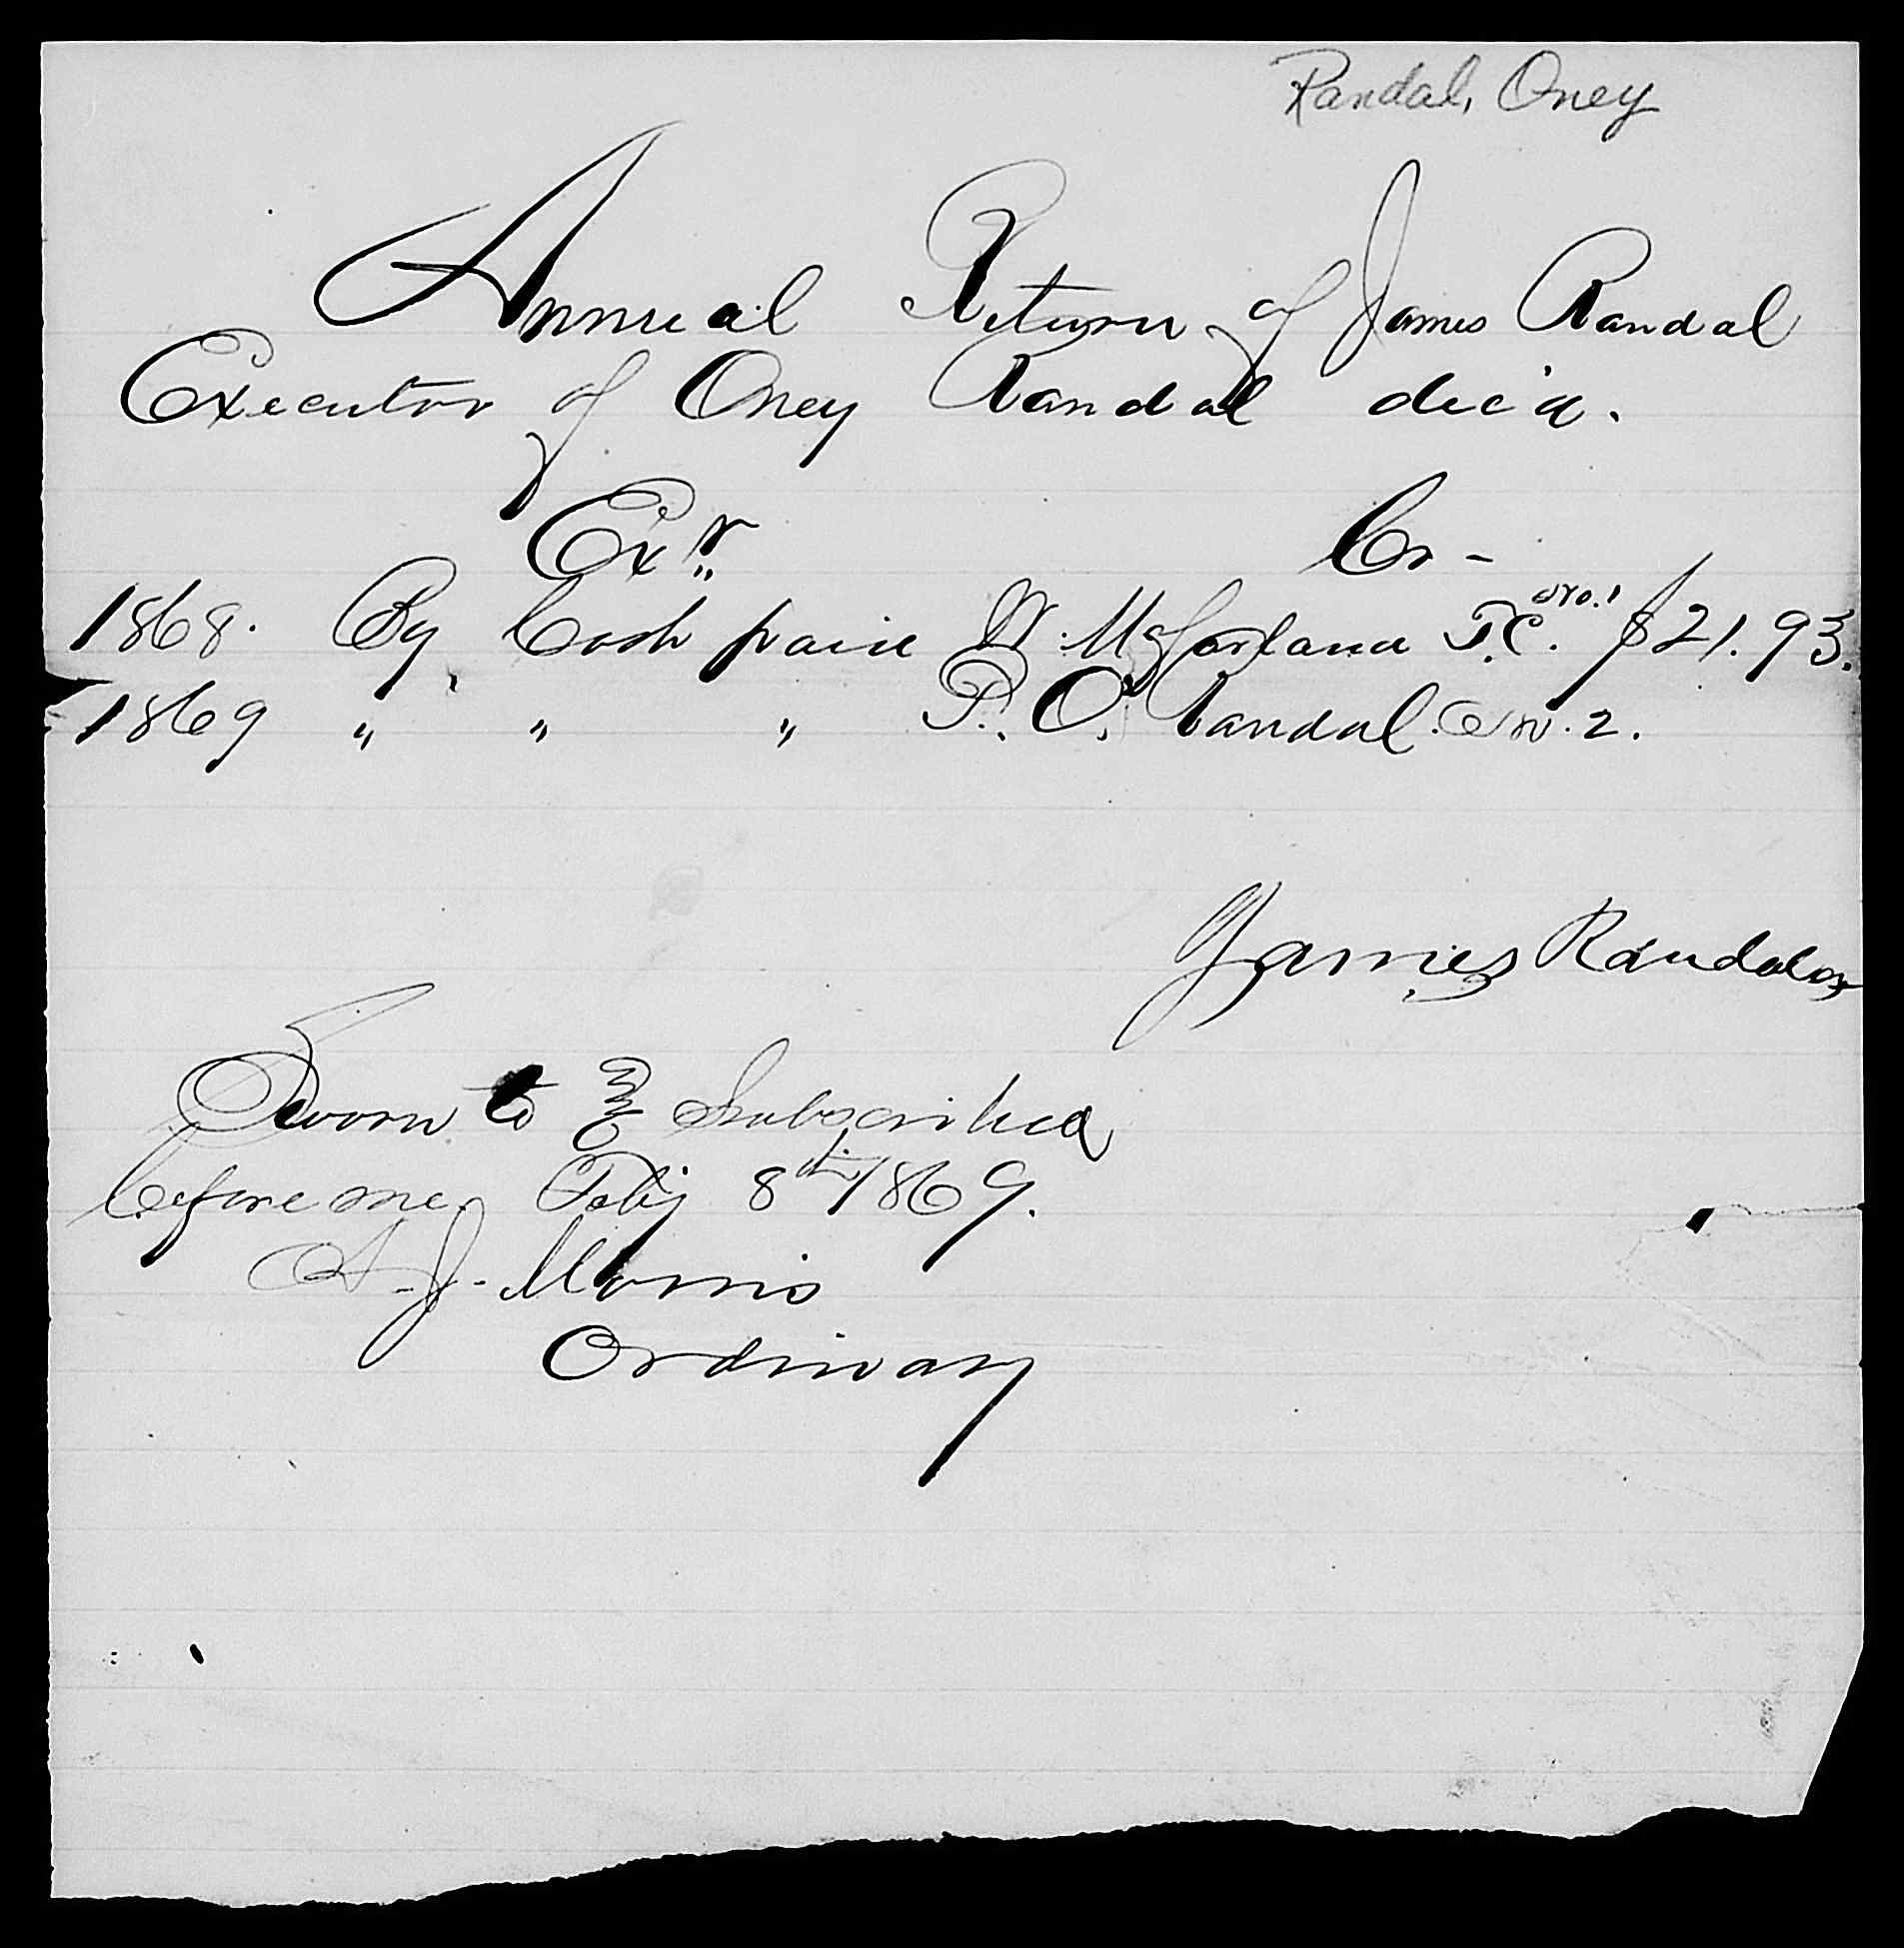 Randal, Oney
Annual Return of James Randal
Executor of Oney Randal dec'd.
Exr Cr -
1868. By Cash paid W. McFarland T.C. No. 1 $21.93.
1869 " " " P. O. Randal. No. 2.
James Randal
Sworn to & Subscribed
before me Feby 8th 1869.
A. J. Morris
Ordinary